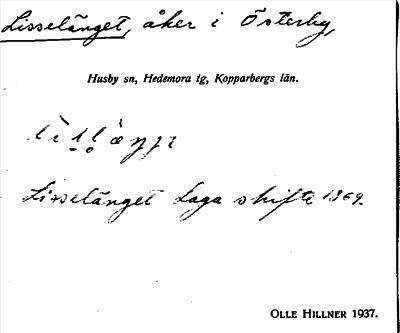 Lisselänget, åker i Österby,
Husby sn, Hedemora tg, Kopparbergs län.
Lisselänget Laga skifte 1869.
OLLE HILLNER 1937.